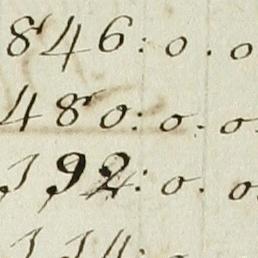 846: 0. 0
480: 0. 0.
192: 0. 0